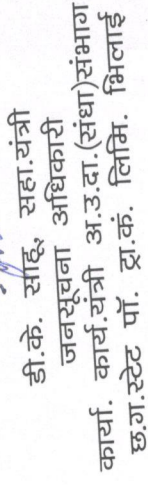 डी.के. साहू सहा.यंत्री
जनसूचना अधिकारी
कार्या. कार्य.यंत्री अ.उ.दा.(संधा)संभाग
छ.ग.स्टेट पॉ. ट्रा.कं. लिमि. भिलाई